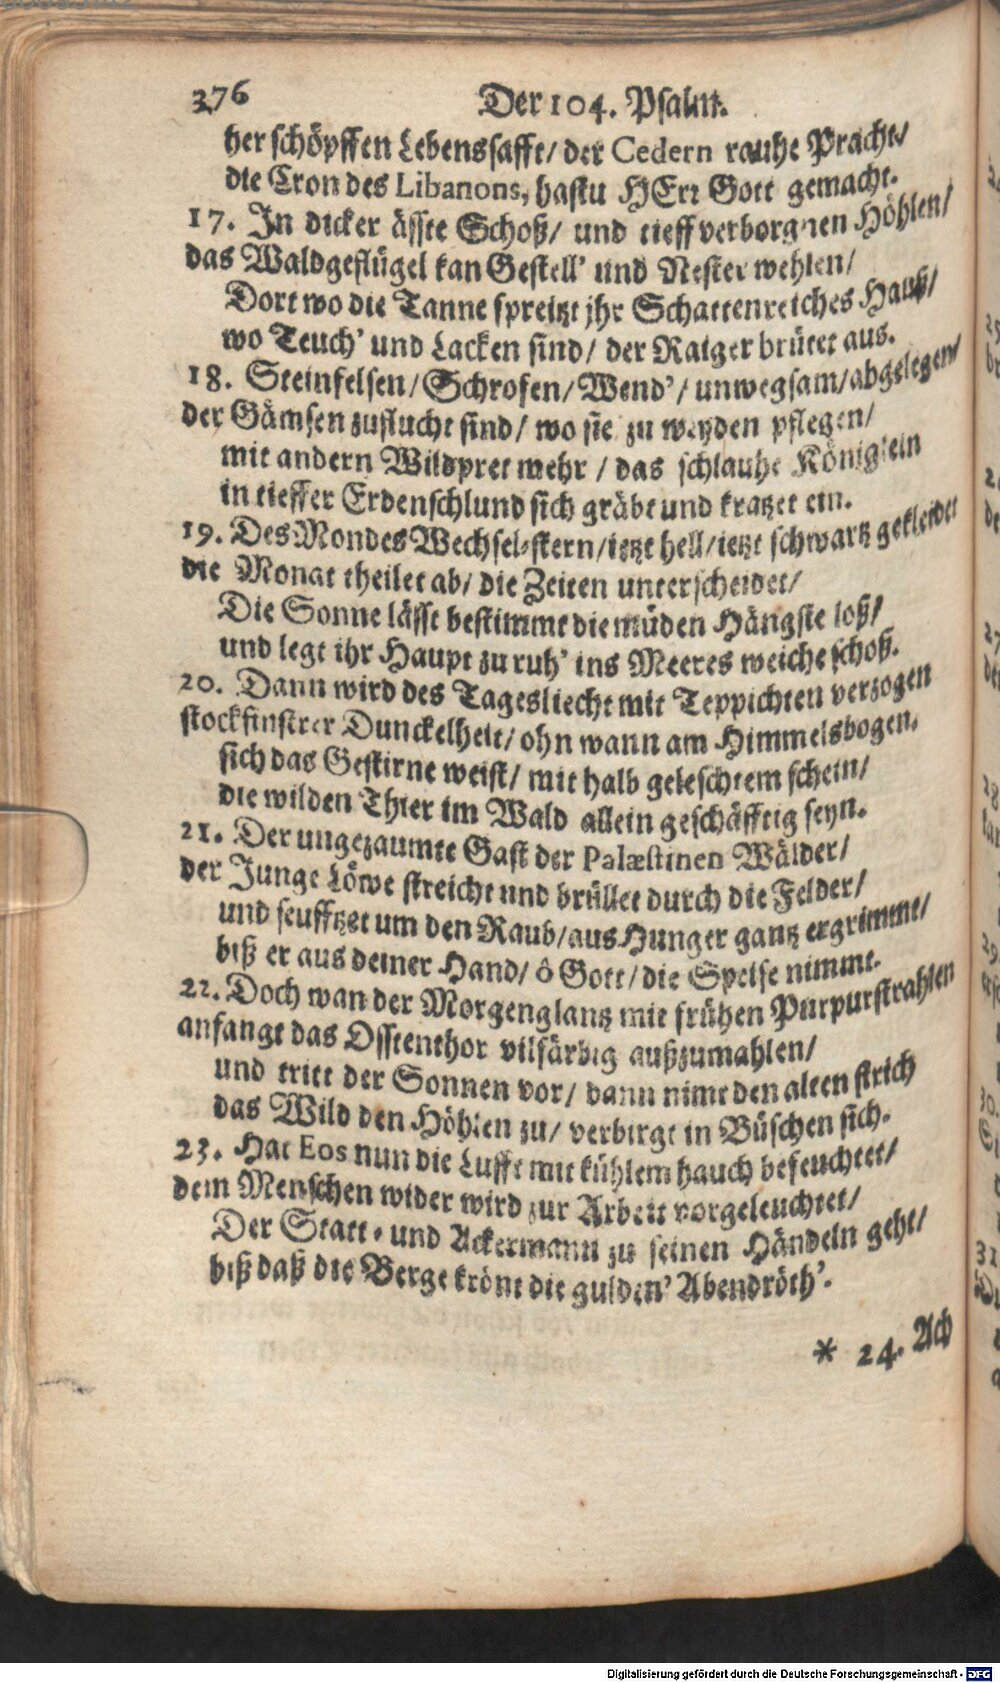 376
Der 104. Psalm.
her schöpffen Lebenssafft/ der Cedern rauhe Pracht/
die Cron des Libanons, hastu HErr Gott gemacht.
17. In dicker ässte Schoß/ und tieff verborgnen Höhlen/
das Waldgeflügel kan Gestell' und Nester wehlen/
Dort wo die Tanne spreitzt jhr Schattenreiches Hauß/
wo Teuch' und Lacken sind/ der Raiger brütet aus.
18. Steinfelsen/ Schrofen/ Wend'/ unwegsam/ abgelegen/
der Gämsen zuflucht sind/ wo sie zu weyden pflegen/
mit andern Wildpret mehr / das schlauhe Königlein
in tieffer Erdenschlund sich gräbt und kratzet ein.
19. Des Mondes Wechsel-stern/ ietzt hell/ ietzt schwartz gekleidet
die Monat theilet ab/ die Zeiten unterscheidet/
Die Sonne lässt bestimmt die müden Hängste loß/
und legt ihr Haupt zu ruh' ins Meeres weiche schoß.
20. Dann wird des Tagesliecht mit Teppichten verzogen
stockfinstrer Dunckelheit/ ohn wann am Himmelsbogen.
sich das Gestirne weist/ mit halb geleschtem schein/
die wilden Thier im Wald allein geschäfftig seyn.
21. Der ungezaumte Gast der Palæstinen Wälder/
der Junge Löwe streicht und brüllet durch die Felder/
und seufftzet um den Raub/ aus Hunger gantz ergrimmt/
biß er aus deiner Hand/ ô Gott/ die Speise nimmt.
22. Doch wan der Morgenglantz mit frühen Purpurstrahlen
anfangt das Osstenthor vilfärbig außzumahlen/
und tritt der Sonnen vor/ dann nimt den alten strich
das Wild den Höhlen zu/ verbirgt in Büschen sich.
23. Hat Eos nun die Lufft mit kühlem hauch befeuchtet/
dem Menschen wider wird zur Arbeit vorgeleuchtet/
Der Statt- und Ackermann zu seinen Händeln geht/
biß daß die Berge krönt die gulden' Abendröth'.
* 24. Ach
Digitalisierung gefördert durch die Deutsche Forschungsgemeinschaft - DFG